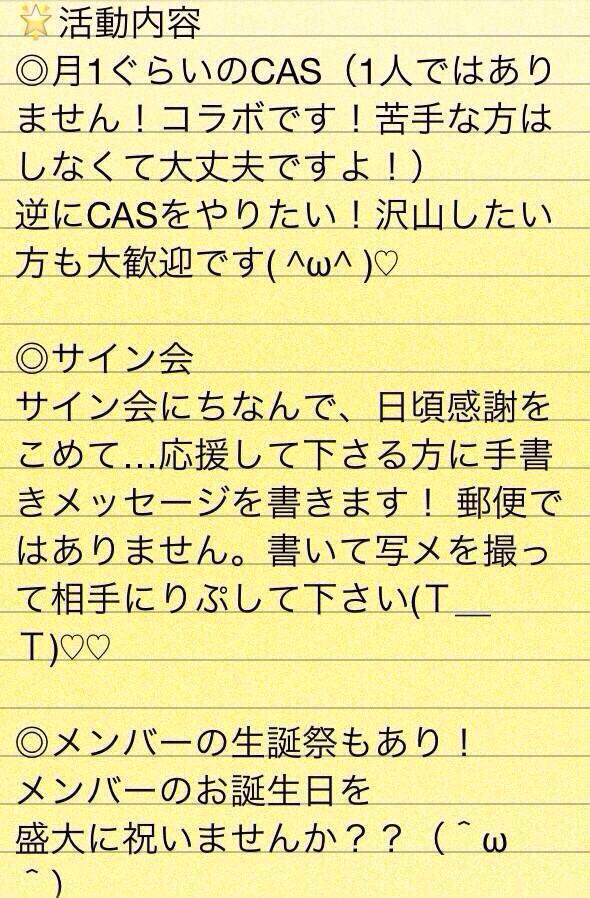 🌟活動内容
◎月1ぐらいのCAS（1人ではあり
ません！コラボです！苦手な方は
しなくて大丈夫ですよ！）
逆にCASをやりたい！沢山したい
方も大歓迎です( ^ω^ )♡
◎サイン会
サイン会にちなんで、日頃感謝を
こめて…応援して下さる方に手書
きメッセージを書きます！ 郵便で
はありません。書いて写メを撮っ
て相手にりぷして下さい(T＿
T)♡♡
◎メンバーの生誕祭もあり！
メンバーのお誕生日を
盛大に祝いませんか？？（＾ω
＾）